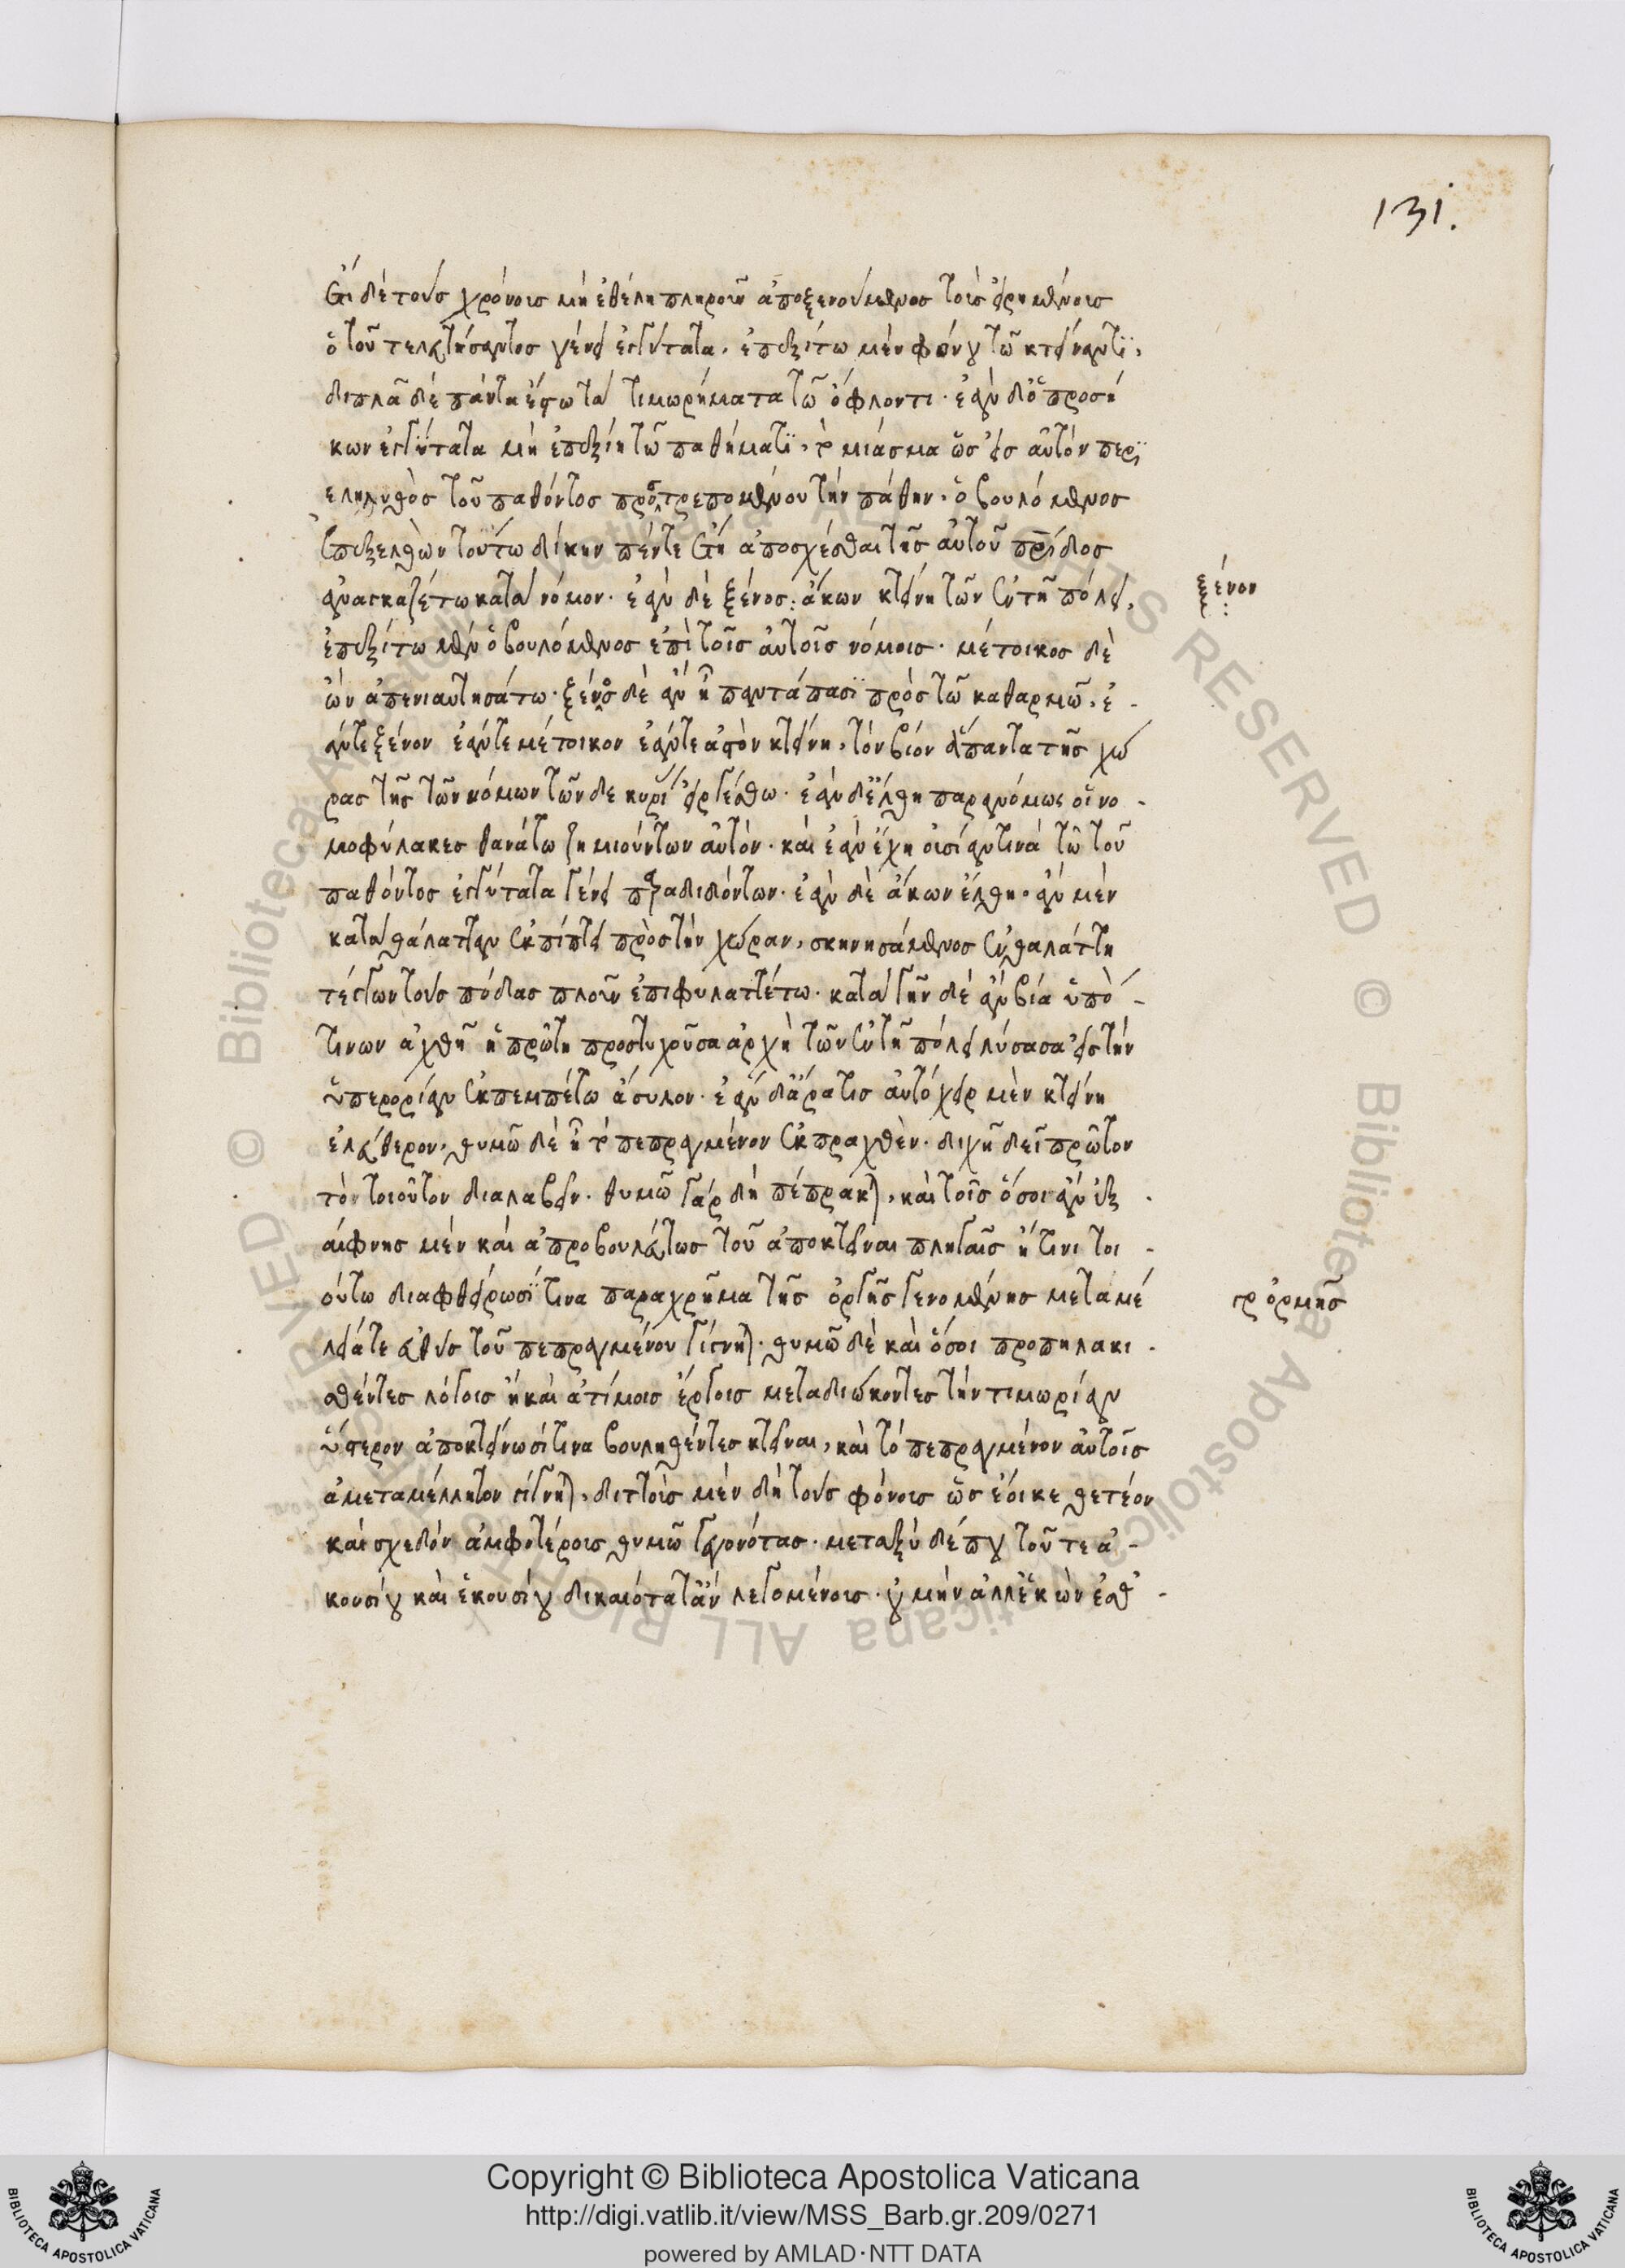 131.
ἐπὶ δὲ τοὺς χρόνους μὴ ἐθέλῃ πληροῦν ἀποξενούμενος τοὺς εἰρημένους
ὁ τοῦ τελευτήσαντος γένει ἐγγύτατα, ἐπεξίτω μὲν φόνου τῶ κτείναντι,
διπλᾶ δὲ πάντα ἔστω τὰ τιμωρήματα τῶ ὀφλόντι. ἐὰν δ' ὁ προσή
κων ἐγγύτατα μὴ ἐπεξίῃ τῶ παθήματι, τὸ μίασμα ὡς εἰς αὐτὸν περι
εληλυθὸς τοῦ παθόντος προστρεπομένου τὴν πάθην. ὁ βουλόμενος
ἐπεξελθὼν τούτω δίκην πέντε ἔτη ἀποσχέσθαι τῆς αὐτοῦ πατρίδος
ἀναγκαζέτω κατὰ νόμον. ἐὰν δὲ ξένος ἄκων κτείνῃ τῶν ἐν τῇ πόλει,
ξένον
ἐπεξίτω μὲν ὁ βουλόμενος ἐπὶ τοῖς αὐτοῖς νόμοις. μέτοικος δὲ
ὢν ἀπενιαυτησάτω. ξένος δὲ ἂν ᾖ παντάπασι πρὸς τῶ καθαρμῶ, ἐ-
άντε ξένον ἐάντε μέτοικον ἐάντε ἀστὸν κτείνῃ, τὸν βίον ἅπαντα τῆς χώ
ρας τῆς τῶν νόμων τῶνδε κυρί εἰργέσθω. ἐὰν δ' ἔλθῃ παρανόμως οἱ νο-
μοφύλακες θανάτω ζημιούντων αὐτόν. καὶ ἐὰν ἔχῃ οὐσίαν τινὰ τῶ τοῦ
παθόντος ἐγγύτατα γένει παραδιδόντων. ἐὰν δὲ ἄκων ἔλθῃ. ἂν μὲν
κατὰ θάλατταν ἐκπίπτει πρὸς τὴν χώραν, σκηνησάμενος ἐν θαλάττῃ
τέγγων τοὺς πόδας πλοῦν ἐπιφυλαττέτω. κατὰ γῆν δὲ ἂν βία ὑπό-
τινων ἀχθῇ ἡ πρώτη προστυχοῦσα ἀρχὴ τῶν ἐν τῇ πόλει λύσασα εἰς τὴν
ὑπερορίαν ἐκπεμπέτω ἄσυλον. ἐὰν δ' ἄρα τις αὐτόχειρ μὲν κτείνῃ
ἐλεύθερον, θυμῶ δὲ ᾖ τὸ πεπραγμένον ἐκπραχθὲν. διχῇ δεῖ πρῶτον
τὸν τοιοῦτον διαλαβεῖν. θυμῶ γὰρ δὴ πέπρακται, καὶ τοῖς ὅσοι ἂν ἐξ
αίφνης μὲν καὶ ἀπροβουλεύτως τοῦ ἀποκτεῖναι πληγαῖς ἤ τινι τοι-
ούτω διαφθείρωσί τινα παραχρῆμα τῆς ὀργῆς γενομένης μεταμέ
γρ ὁρμῆς
λειά τε εὐθὺς τοῦ πεπραγμένου γίγνηται. θυμῶ δὲ καὶ ὅσοι προπηλακι-
σθέντες λόγοις ἢ καὶ ἀτίμοις ἔργοις μεταδιώκοντες τὴν τιμωρίαν
ὕστερον ἀποκτείνωσί τινα βουληθέντες κτεῖναι, καὶ τὸ πεπραγμένον αὐτοῖς
ἀμεταμέλητον γίγνηται, διττοὺς μὲν δὴ τοὺς φόνους ὡς ἔοικε θετέον
καὶ σχεδὸν ἀμφοτέρους θυμῶ γεγονότας. μεταξὺ δέ που τοῦ τε ἀ-
κουσίου καὶ ἑκουσίου δικαιότατ' ἂν λεγομένους. οὐ μὴν ἀλλ' ἑκὼν ἔσθ'-
Copyright © Biblioteca Apostolica Vaticana
http://digi.vatlib.it/view/MSS_Barb.gr.209/0271
powered by AMLAD·NTT DATA